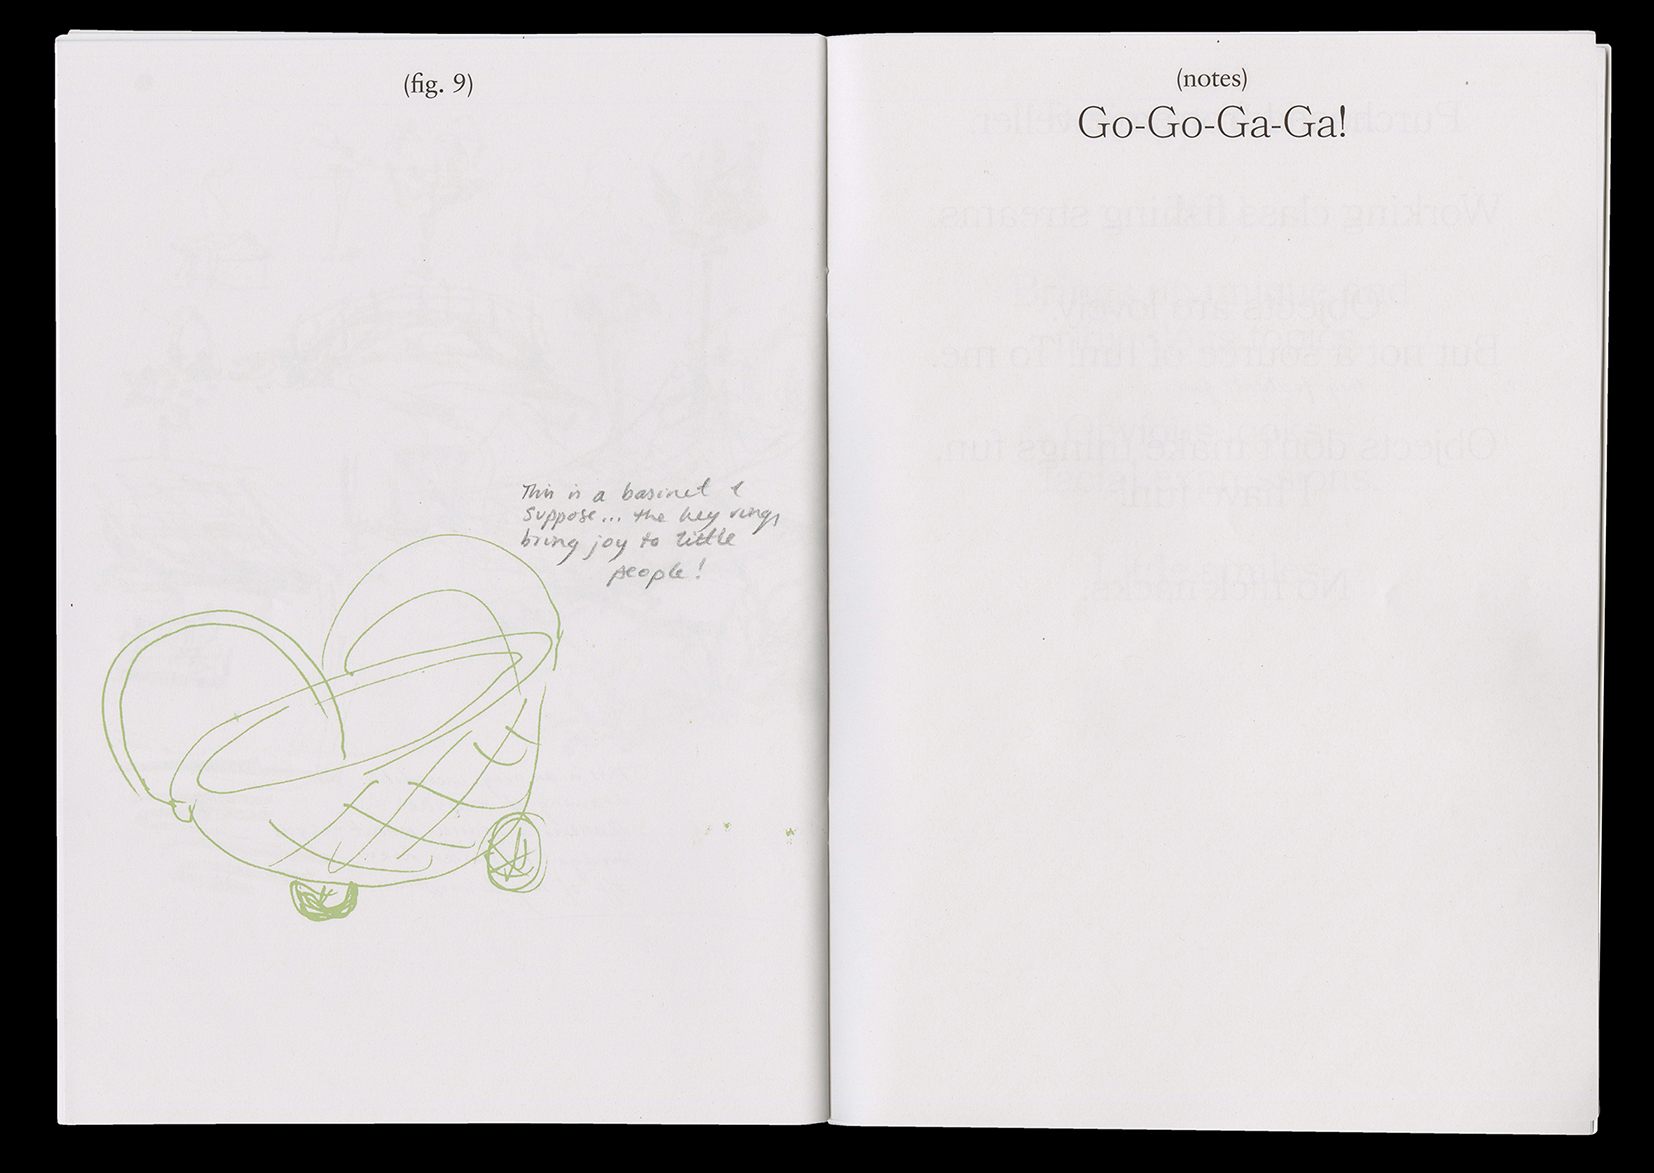 (fig. 9)
This is a basinet I
suppose... the key rings
bring joy to little
people!
(notes)
Go-Go-Ga-Ga!